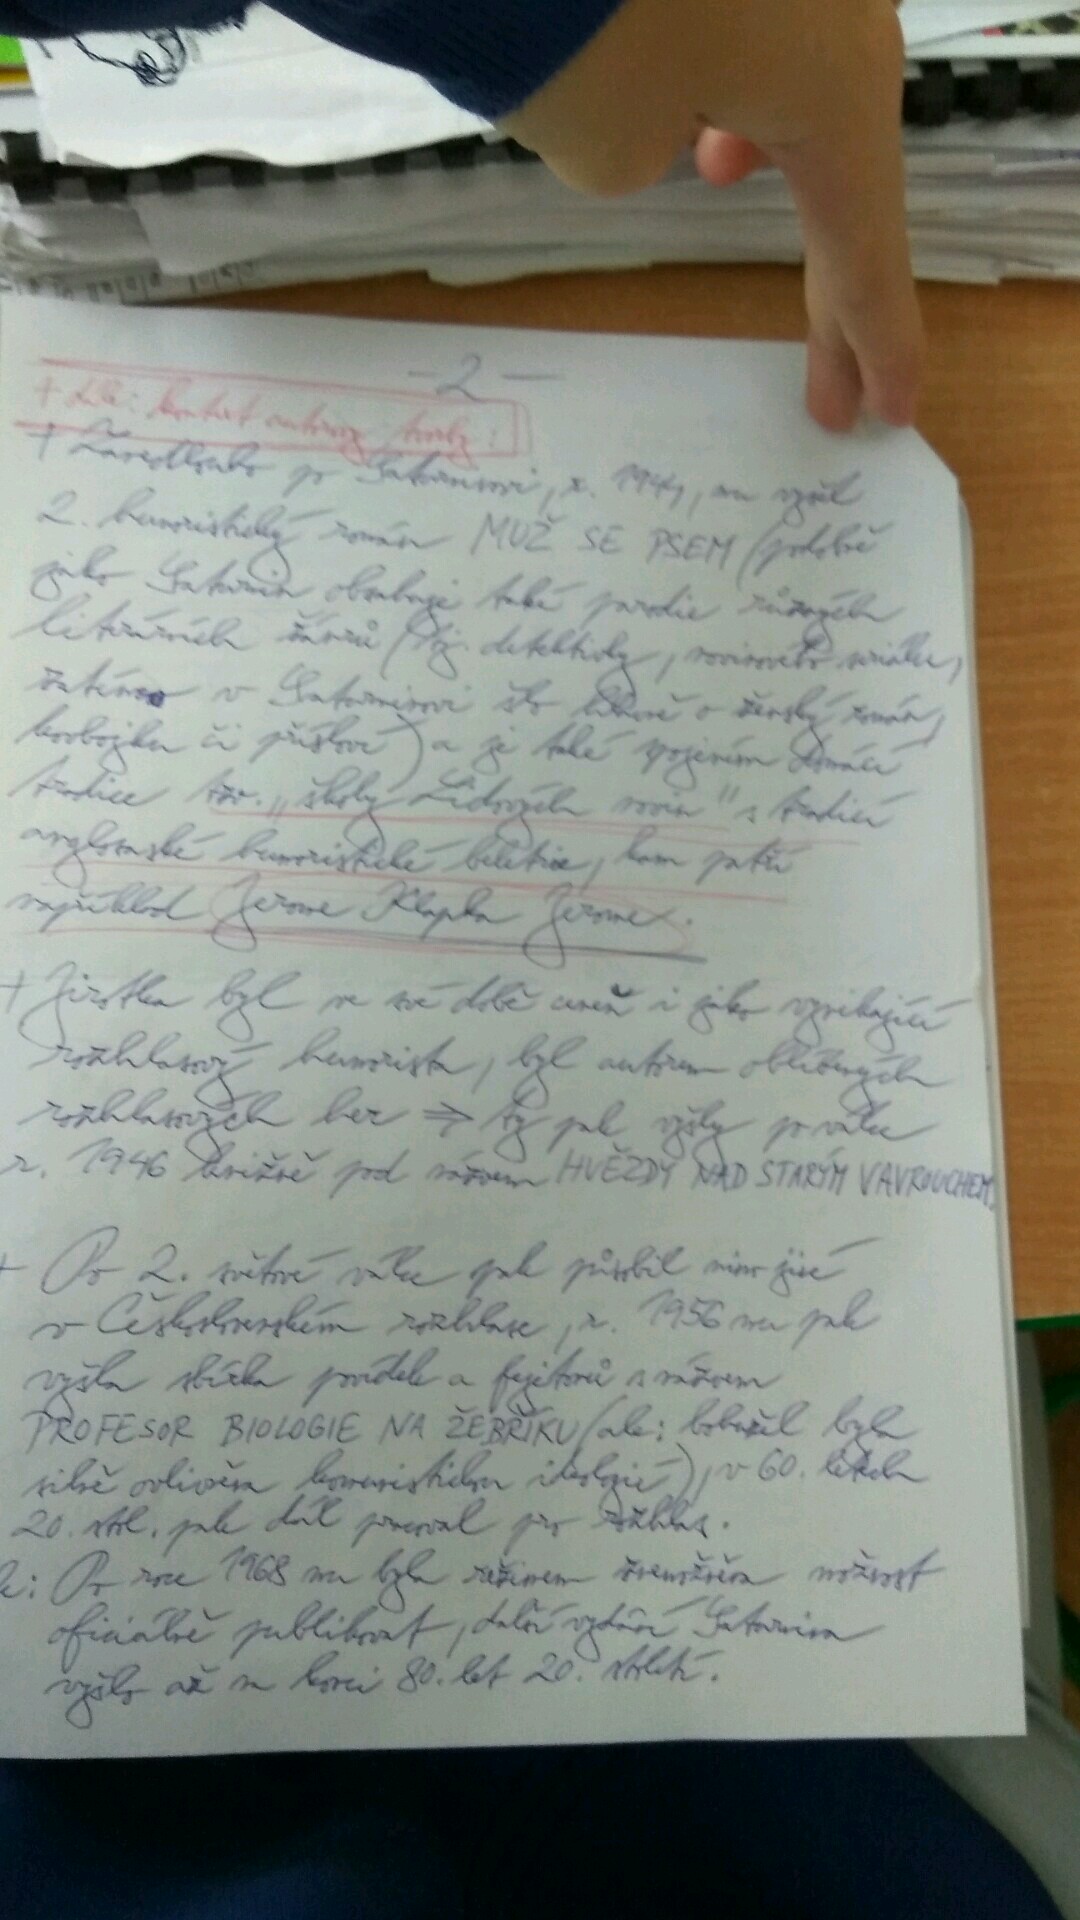 - 2 -
+ dále: kontext autorovy tvorby:
+ Zanedlouho po Saturninovi, r. 1944, mu vyšel
2. humoristický román MUŽ SE PSEM (podobně
jako Saturnin obsahuje také parodie různých
literárních žánrů (tj. detektivky, novinového seriálu,
zatímco v Saturninovi šlo hlavně o ženský román,
kovbojku či přísloví) a je také spojením domácí
tradice tzv. "školy Lidových novin" s tradicí
anglosaské humoristické beletrie, kam patří
například Jerome Klapka Jerome.
+ Jirotka byl ve své době ceněn i jako vynikající
rozhlasový humorista, byl autorem oblíbených
rozhlasových her => ty pak vyšly po válce
r. 1946 knižně pod názvem HVĚZDY NAD STARÝM VAVROUCHEM.
+ Po 2. světové válce pak působil mimo jiné
v Československém rozhlase, r. 1956 mu pak
vyšla sbírka povídek a fejetonů s názvem
PROFESOR BIOLOGIE NA ŽEBŘÍKU (ale: bohužel byla
silně ovlivněna komunistickou ideologií), v 60. letech
20. stol. pak dál pracoval pro rozhlas.
Po roce 1968 mu byla režimem znemožněna možnost
oficiálně publikovat, další vydání Saturnina
vyšlo až na konci 80. let 20. století.